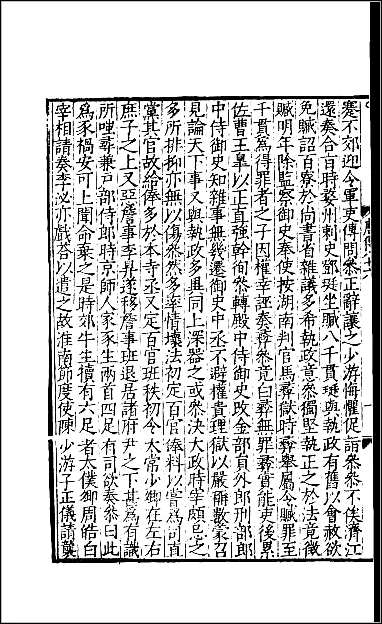 蹇不郊迎令軍吏傳問叅正辭讓之少游悔懼促詣叅叅不俟濟江
還奏合旨時婺州刺史鄧珽坐贓八千貫珽與執政有舊以會赦欲
免贓詔百寮於尚書省雜議多希執政意叅獨堅執正之於法竟徵
贓明年除監察御史奉使按湖南判官馬彞獄時彞舉屬令贓罪至
千貫為得罪者之子因權幸誣奏彞叅竟白彞無罪彞實能吏後累
佐曹王臯以正直強幹徇叅轉殿中侍御史改金部員外郎刑部郎
中侍御史知雜事無幾遷御史中丞不避權貴理獄以嚴稱數蒙召
見論天下事又與執政多異同上深器之或叅決大政時宰頗忌之
多所排抑亦無以傷叅然多率情壞法初定百官俸料以嘗為司直
黨其官故給俸多於本寺丞又定百官班秩初令太常少卿在左右
庶子之上又惡詹事李昪遂移詹事班退居諸府尹之下甚為有識
所嗤尋兼戶部侍郎時京師人家豕生兩首四足有司欲奏叅曰此
為豕禍安可上聞命棄之是時郊牛生犢有六足者太僕卿周皓白
宰相請奏李泌亦戲荅以遣之故淮南節度使陳少游子正儀請襲